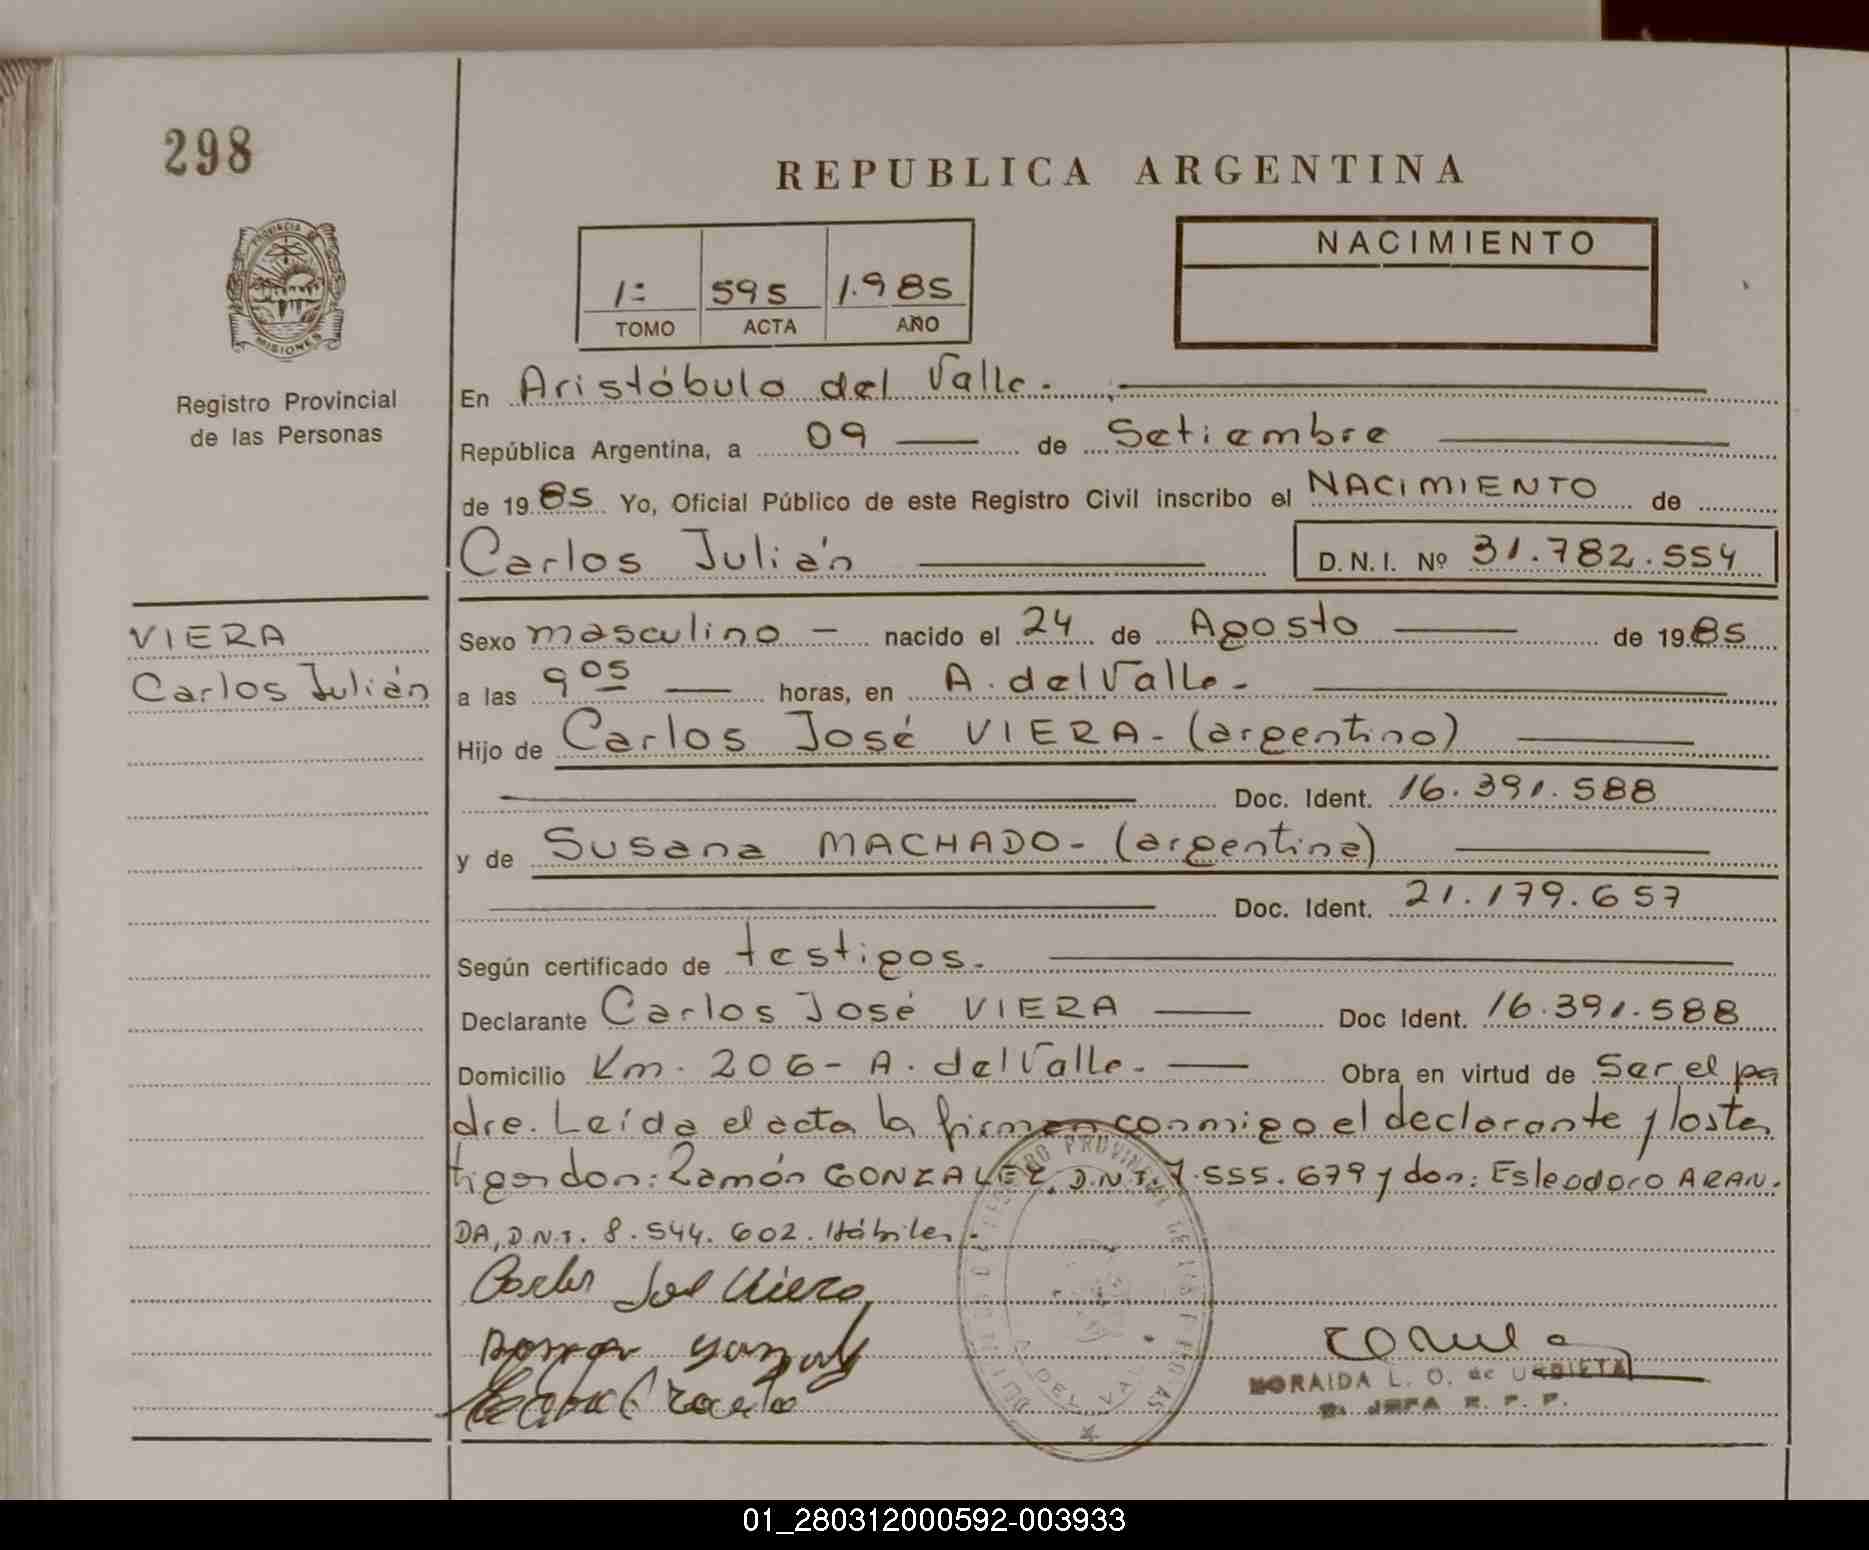 298
REPUBLICA ARGENTINA
PROVINCIA DE
MISIONES
1º 595 1.985
TOMO ACTA AÑO
NACIMIENTO
Registro Provincial
de las Personas
En Aristóbulo del Valle.
República Argentina, a 09 de Setiembre
de 1985 Yo, Oficial Público de este Registro Civil inscribo el NACIMIENTO de
Carlos Julián D.N.I. Nº 31.782.554
VIERA
Carlos Julián
Sexo masculino - nacido el 24 de Agosto de 1985
a las 9 05 horas, en A. del Valle.
Hijo de Carlos José VIERA - (argentino)
Doc. Ident. 16.391.588
y de Susana MACHADO - (argentina)
Doc. Ident. 21.179.657
Según certificado de testigos.
Declarante Carlos José VIERA Doc Ident. 16.391.588
Domicilio Km. 206 - A. del Valle. Obra en virtud de Ser el pa
dre. Leída el acta la firman conmigo el declarante y los tes
tigos don: Ramón GONZALEZ, D.N.I. 7.555.679 y don: Esleodoro ARAN.
DA, D.N.I. 8.544.602. Hábiles.
Carlos José Viera
MORAIDA L. O. de URDIETA
JEFA R. P. P.
01_280312000592-003933